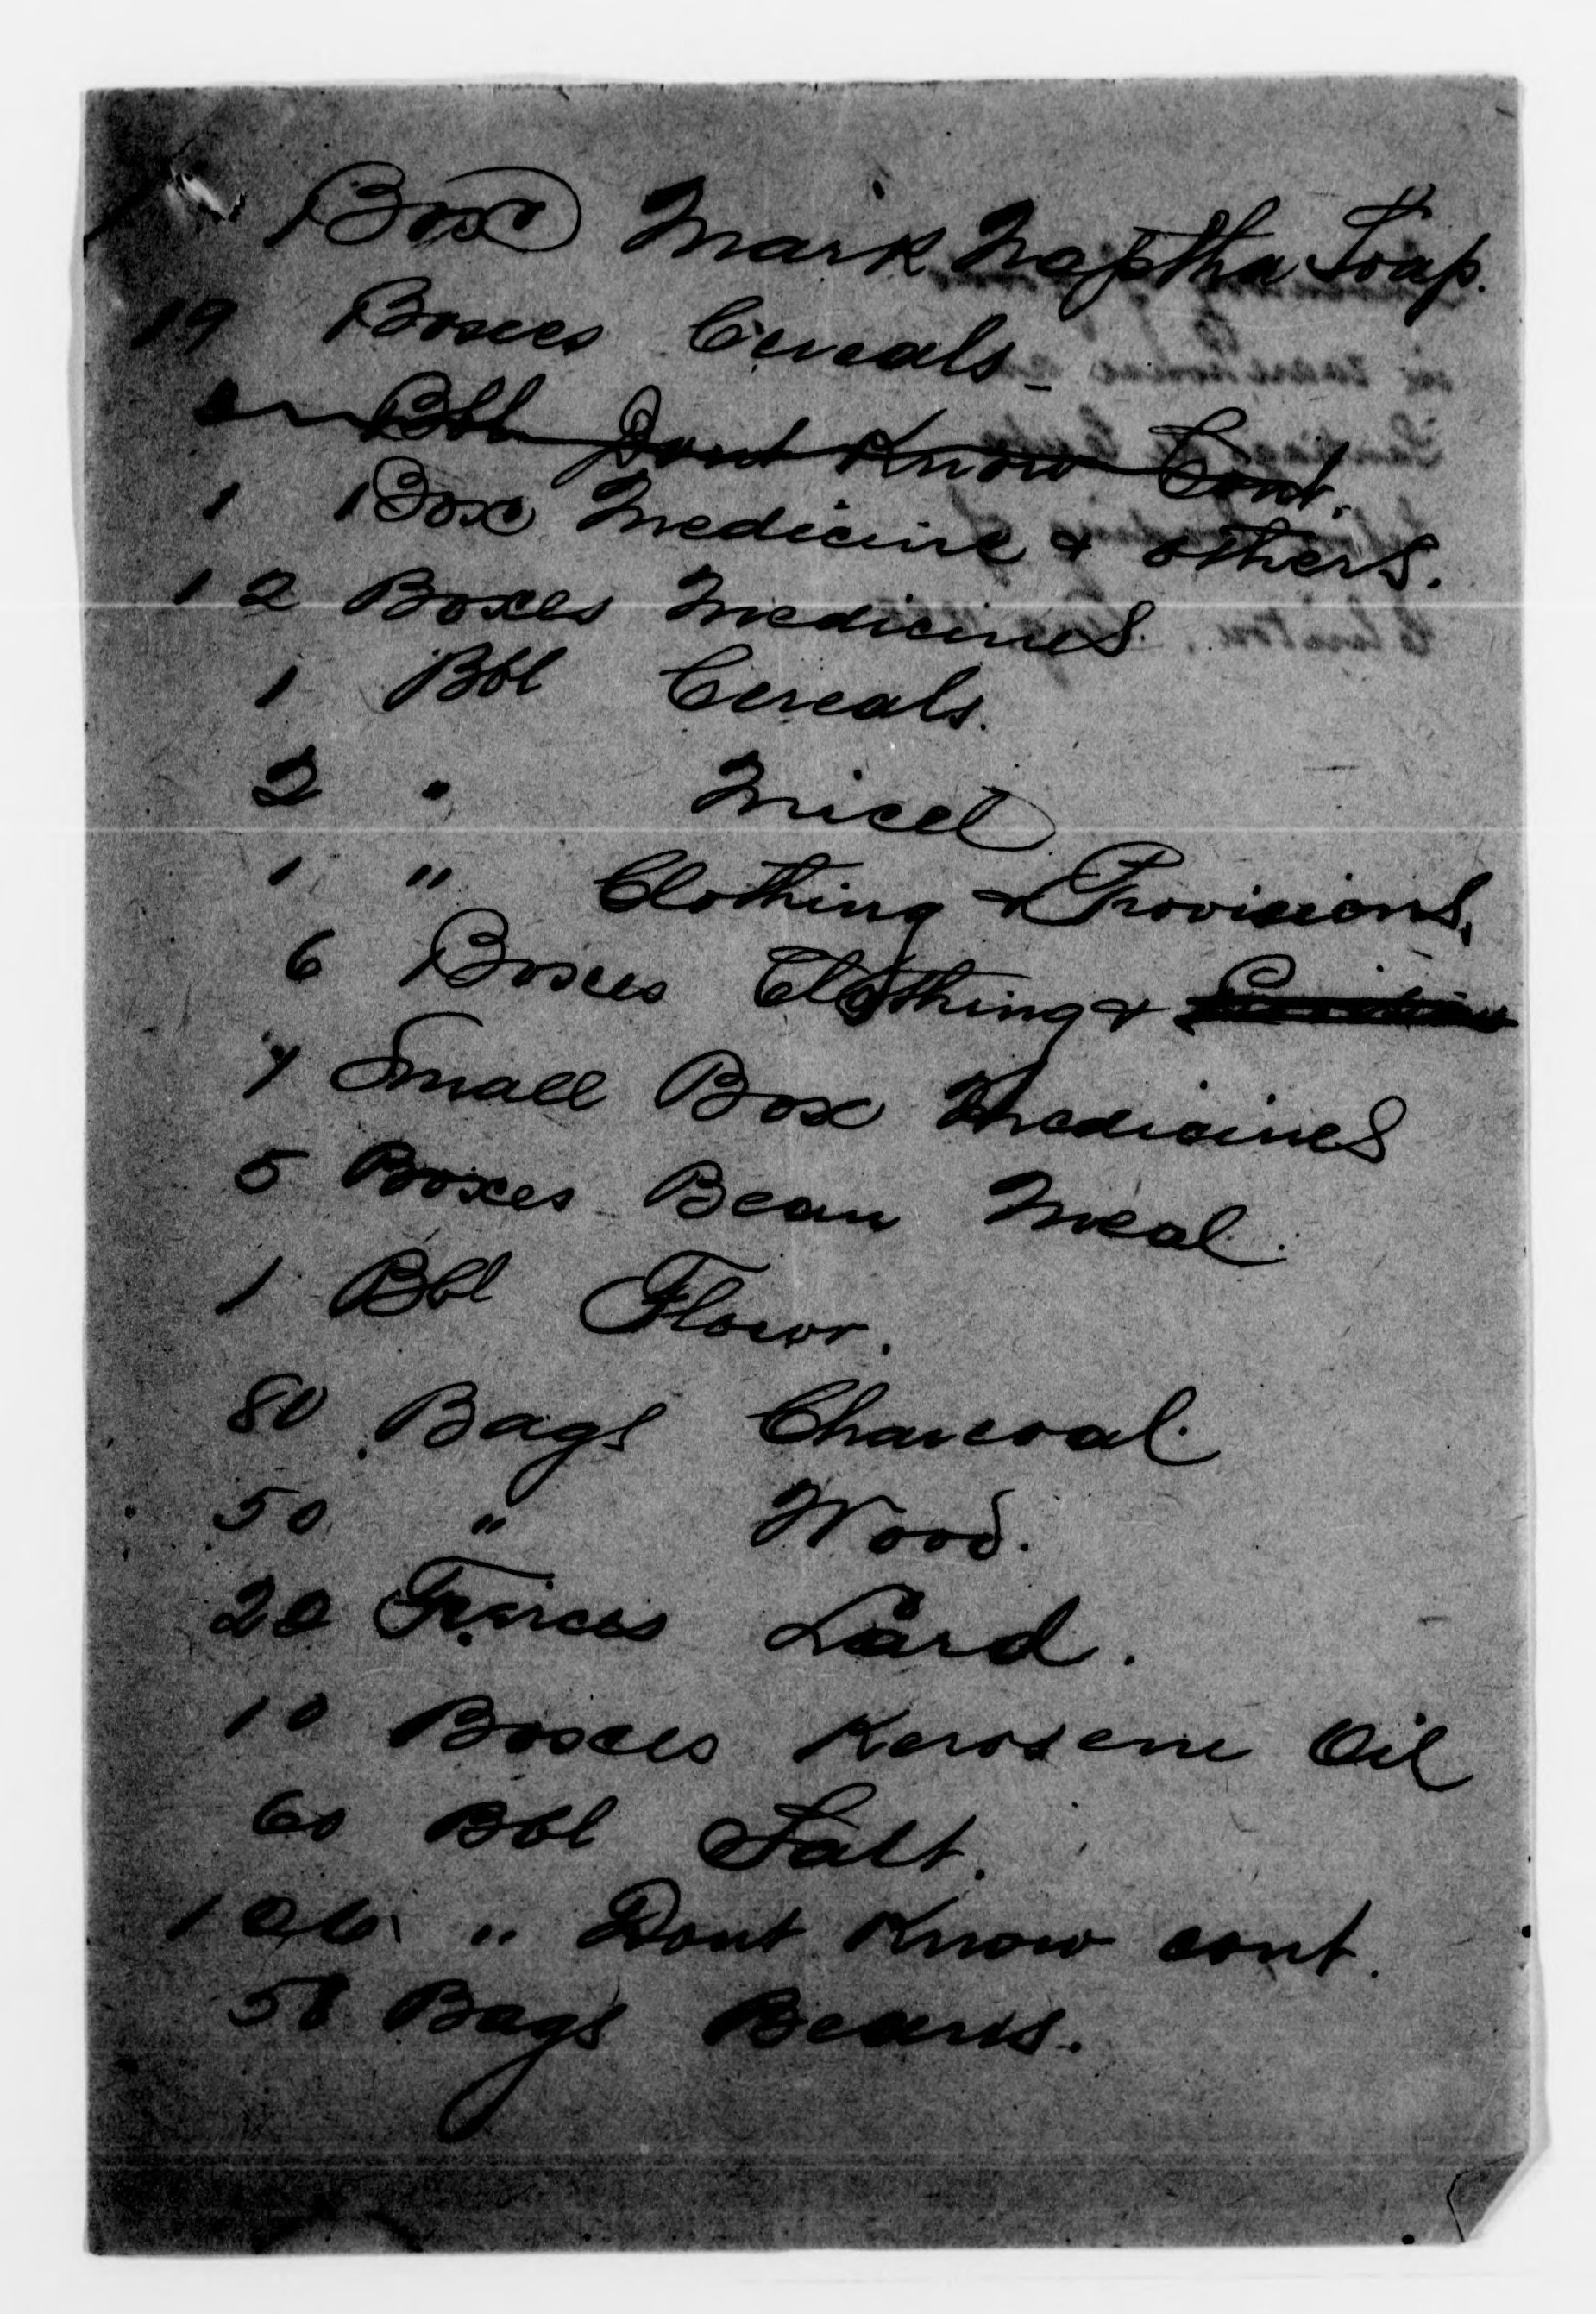 Box Mark Naptha Soap.
19 Boxes Cereals -
Bbl Dont Know Cont.
1 Box Medicine & others.
12 Boxes Medicines
1 Bbl Cereals.
2 " Micel
1 " Clothing & Provisions,
6 Boxes Clothing &
Small Box Medicines
5 Boxes Bean Meal.
1 Bbl Flour.
80 Bags Charcoal.
50 " Wood.
20 Tierces Lard.
10 Boxes Kerosene Oil
60 Bbl Salt.
106 " Dont Know cont.
58 Bags Beans.